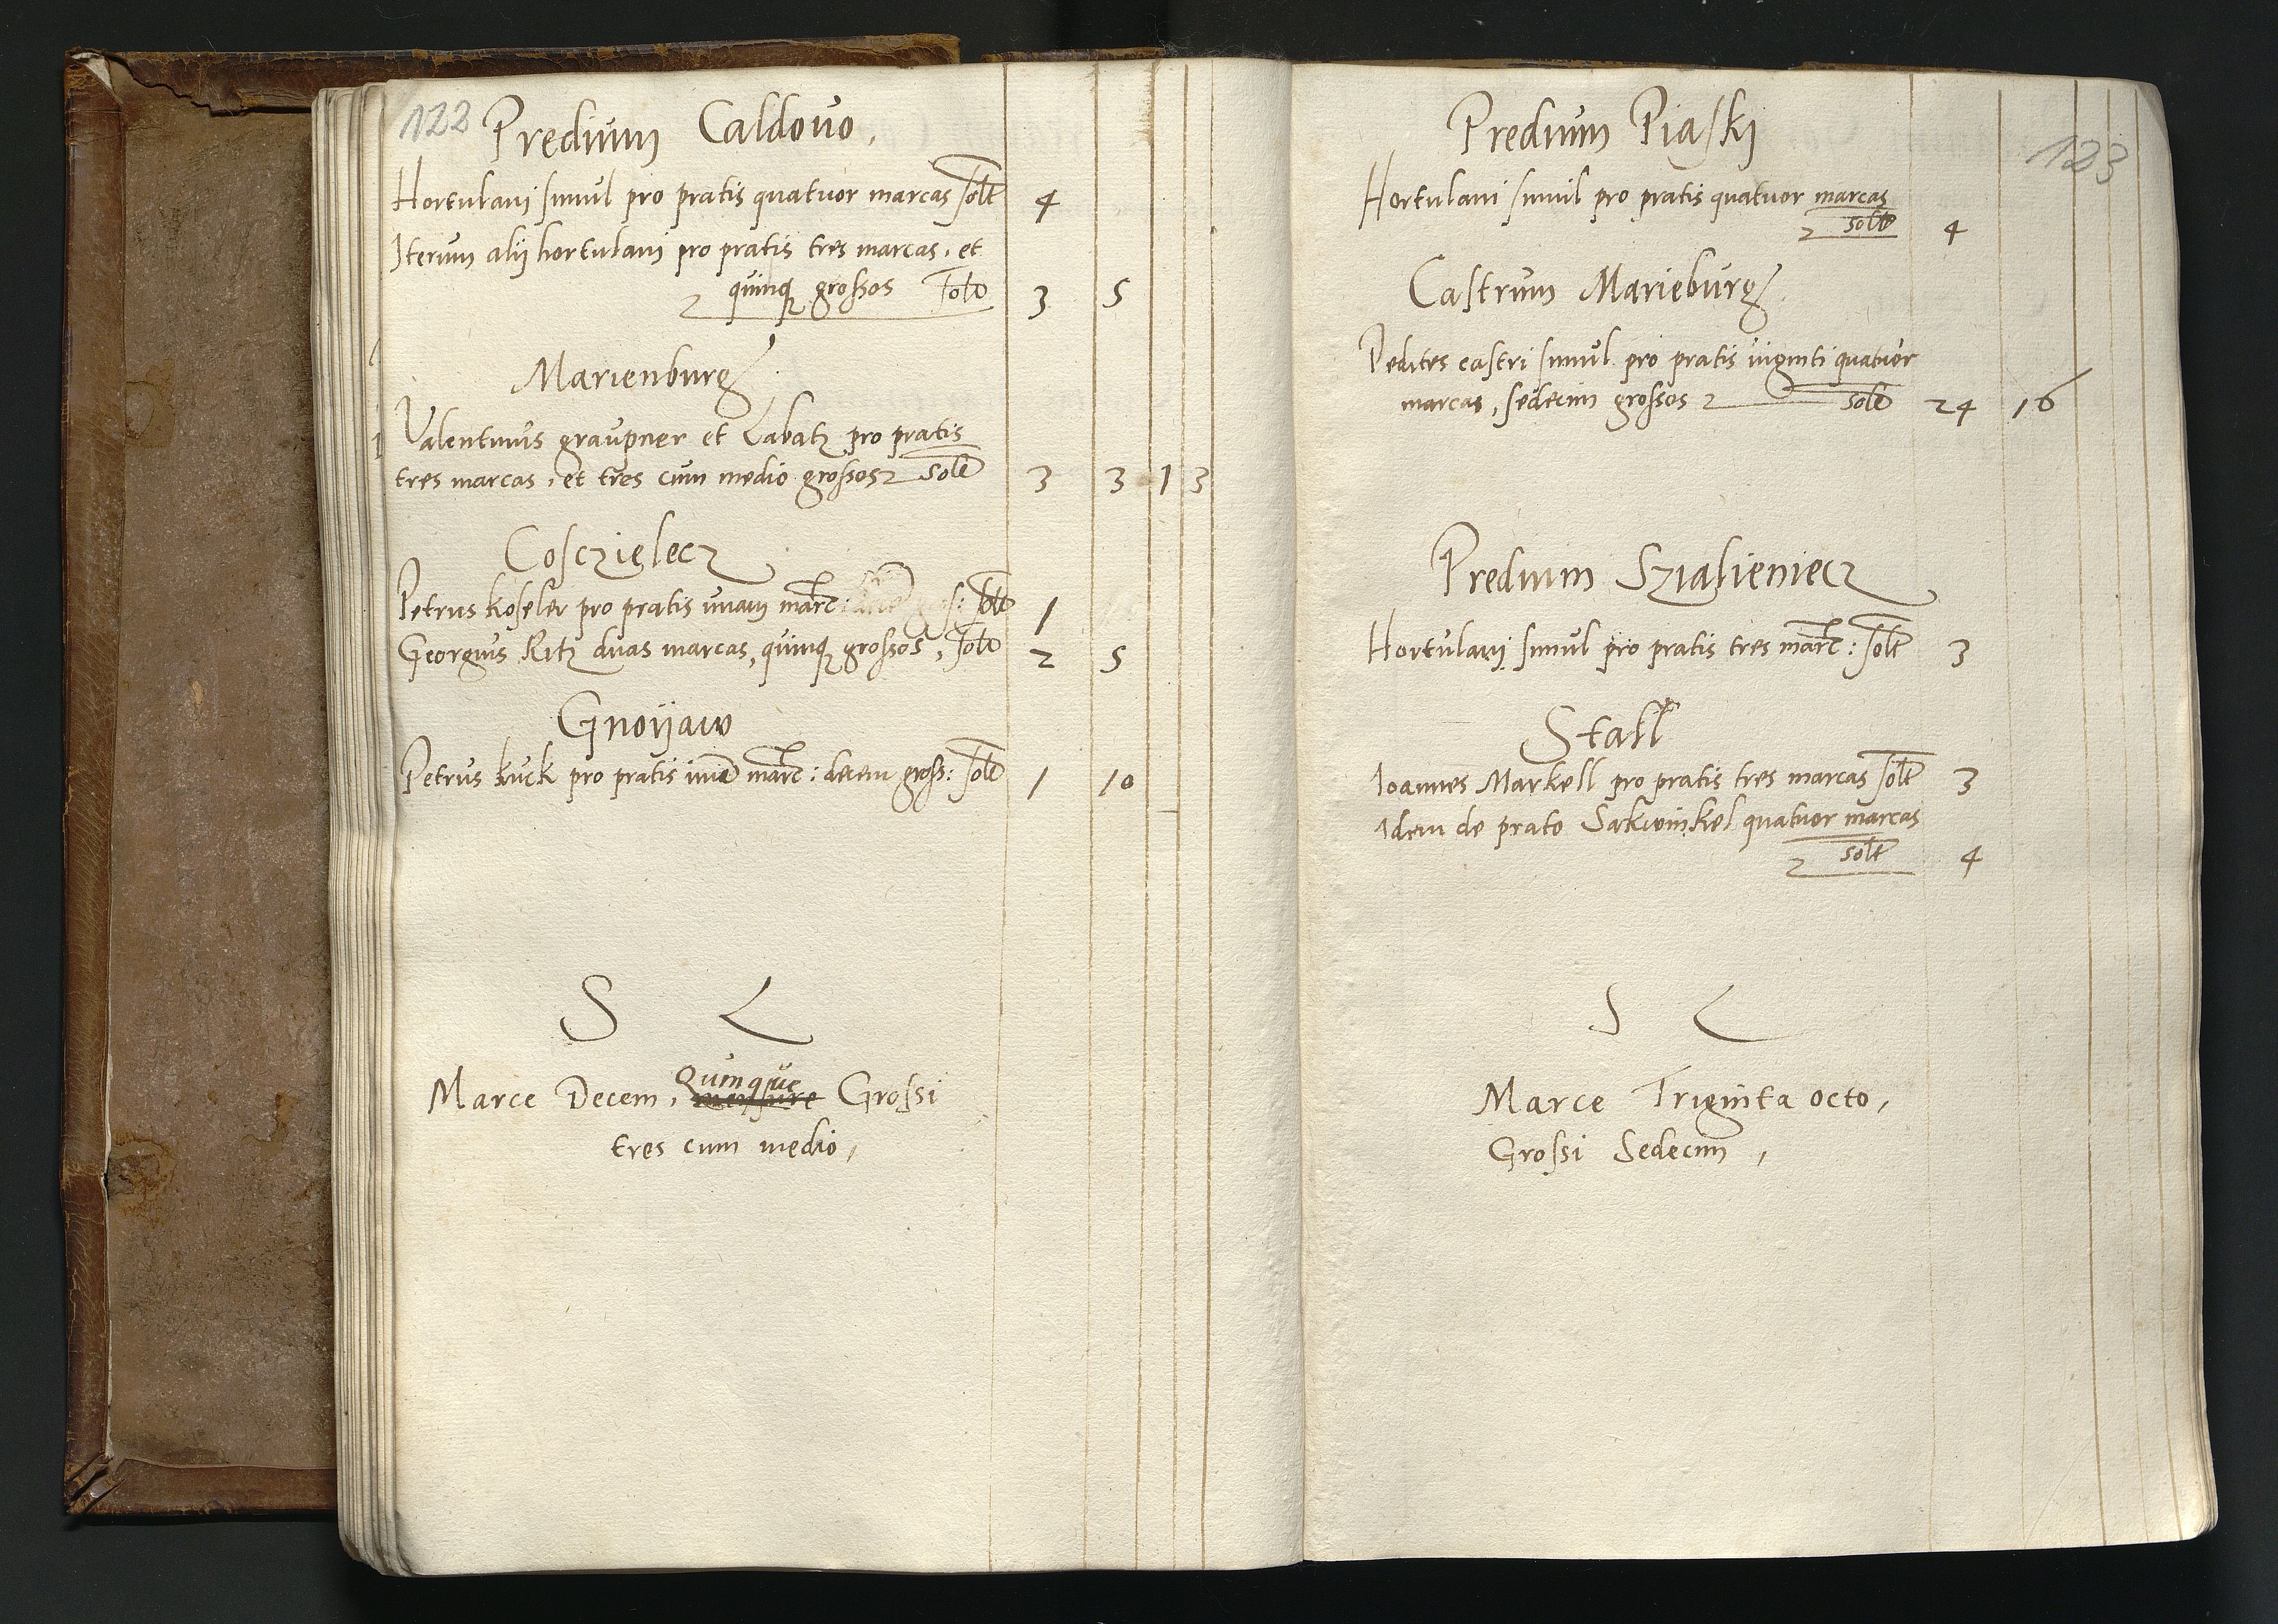 122
Predium Caldovo.
Hortulani simul pro pratis quatuor marcas solt 4
Iterum alij hortulani pro pratis tres marcas, et
quinq grossos solt 3 5
Marienburg
Valentinus graupner et Labatz pro pratis
tres marcas, et tres cum medio grossos solt 3 3 1 3
Cosczielecz
Petrus koseler pro pratis unam marc: gros: solt 1
Georgius Ritz duas marcas, quinq grossos, solt 2 5
Gnoijaw
Petrus kuck pro pratis una marc: decem gross: solt 1 10
S L
Marce Decem, Quinque Grossi
tres cum medio,
123
Predium Piaski
Hortulani simul pro pratis quatuor marcas
solt 4
Castrum Marieburg
Pedites castri simul pro pratis viginti quatuor
marcas, sedecim grossos solt 24 16
Predium Szialieniecz
Hortulani simul pro pratis tres marc: solt 3
Stall
Ioannes Markell pro pratis tres marcas solt 3
Idem de prato Sakwinkel quatuor marcas
solt 4
S L
Marce Triginta octo,
Grossi Sedecim,